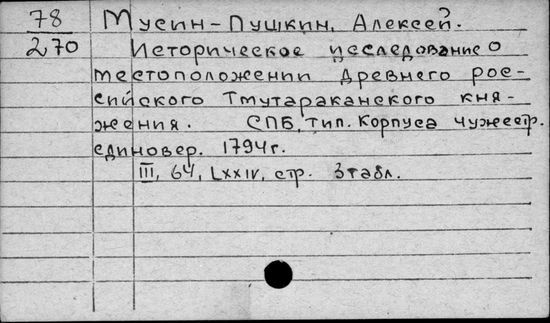 78 Мусин-Пушкин, Алексей.
270 Историческое исследование о
местоположении древнего рос-
сийского Тмутараканского кня-
жения. СПБ, тип. Корпуса чужестр.
единовер. 1794 г.
III, 64, LXXIV, стр. 3 табл.